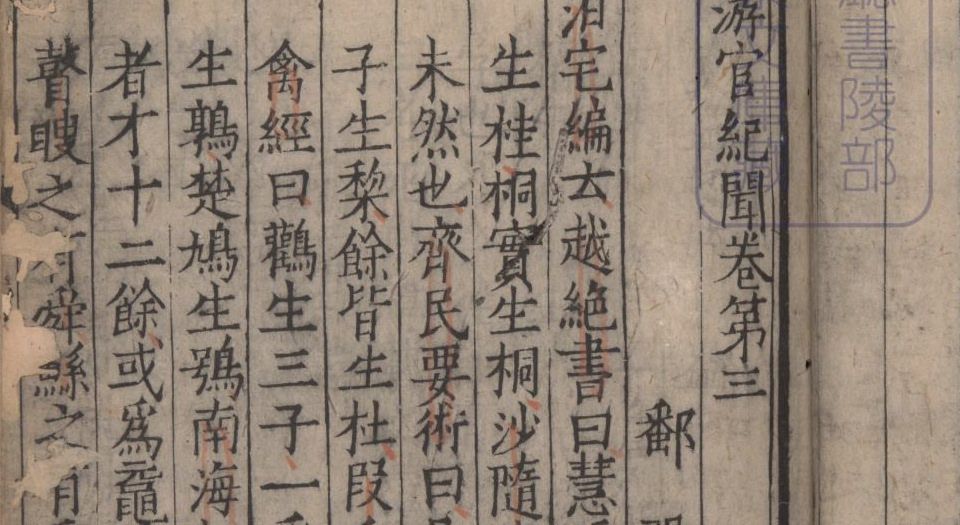 廳書陵部
游官紀聞卷第三
鄱
泊宅編云越絕書曰慧
生桂桐實生桐沙隨
未然也齊民要術曰
子生棃餘皆生杜段
禽經曰鸛生三子一
生鶉楚鳩生鴞南海
者才十二餘或爲黿
瞽瞍之有舜鯀之有